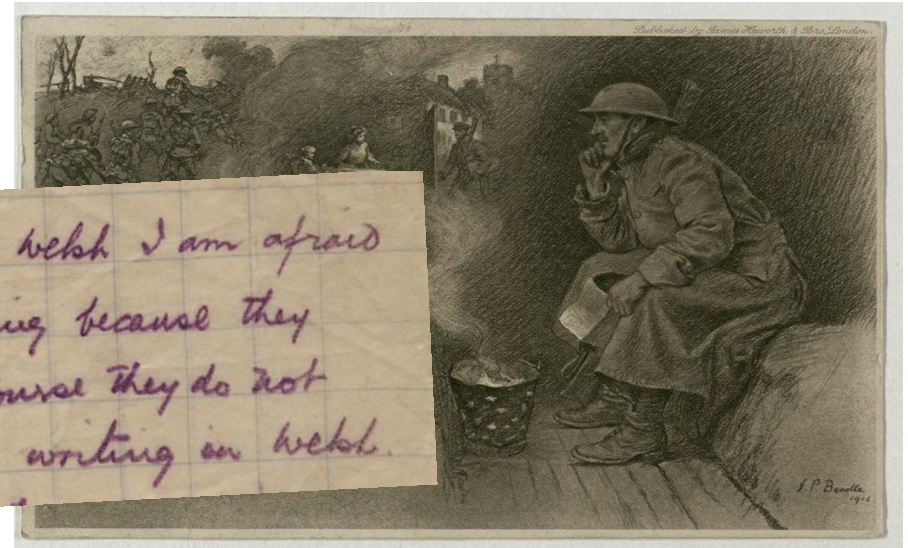 Published by James Haworth & Bro, London.
welsh I am afraid
ing because they
ourse they do not
writing in welsh.
J. P. Beadle
1916